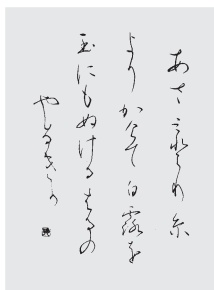 あさみとり糸
よりかけて白露を
玉にもぬけるはるの
やなきか